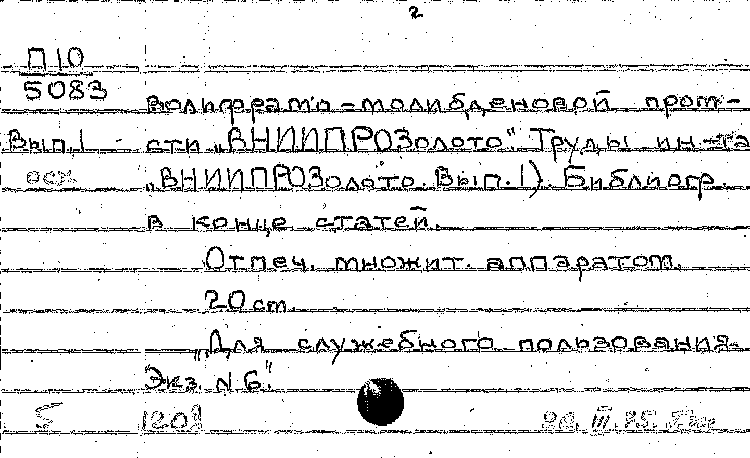 2
П10
5083
вольфрамо-молибденовой пром-
Вып.1 сти „ВНИИПРОЗолото". Труды ин-та
осх „ВНИИПРОЗолото. Вып. 1). Библиогр.
в конце статей.
Отпеч. множит. аппаратом.
20 cm.
„Для служебного пользования.
Экз. N 6."
5 1208 III. 85.